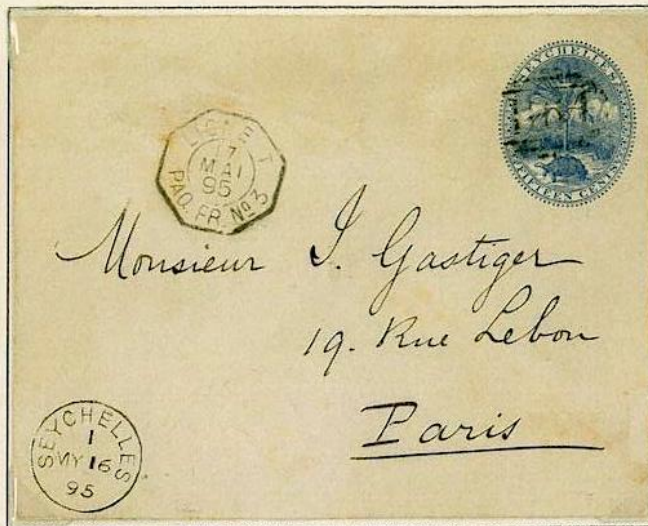 SEYCHELLES
FIFTEEN CENTS
LIGNE T
17
MAI
95
PAQ. FR. Nº 3
Monsieur J. Gastiger
19. Rue Lebon
Paris
SEYCHELLES
1
MY 16
95